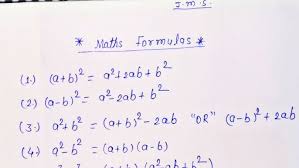 J.M.S.
* Maths Formulas *
(1.) (a+b)² = a²+2ab+b²
(2) (a-b)² = a²-2ab+b²
(3.) a²+b² = (a+b)²-2ab "OR" (a-b)²+2ab
(4) a²-b² = (a+b)(a-b)